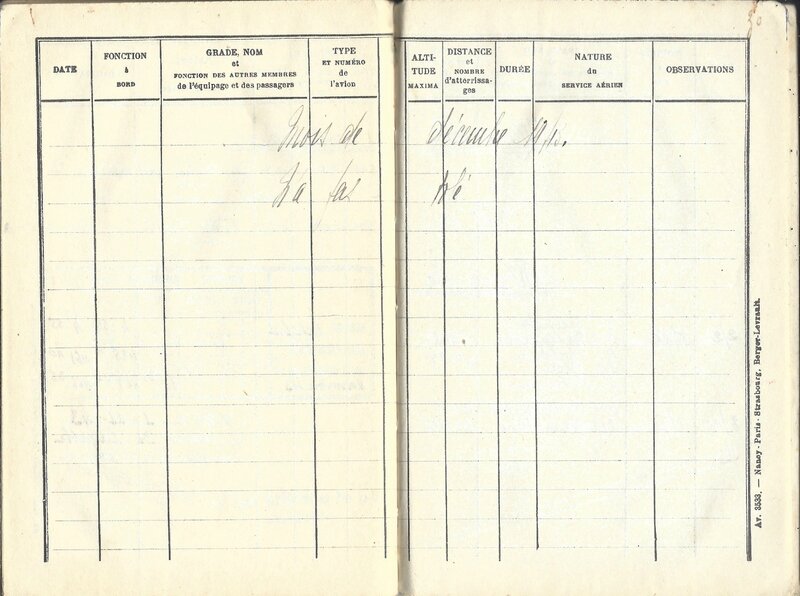 DATE
FONCTION
à
BORD
GRADE, NOM
et
FONCTION DES AUTRES MEMBRES
de l'équipage et des passagers
TYPE
ET NUMÉRO
de
l'avion
ALTI-
TUDE
MAXIMA
DISTANCE
et
NOMBRE
d'atterrissa-
ges
DURÉE
NATURE
du
SERVICE AÉRIEN
OBSERVATIONS
Mois de décembre
Av. 3533. — Nancy-Paris-Strasbourg, Berger-Levrault.